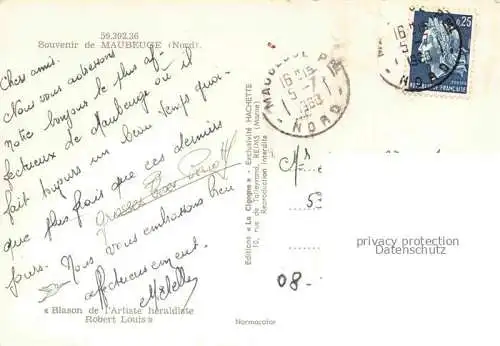 59.392.36
Souvenir de MAUBEUGE (Nord).
Chers amis.
Nous vous adressons
notre bonjour le plus af-
fectueux de Maubeuge où il
fait toujours un beau temps quoi-
que plus frais que ces derniers
jours. Nous vous embrassons bien
affectueusement.
« Blason de l'Artiste héraldiste
Robert Louis »
Editions « La Cigogne » - Exclusivité HACHETTE
10, rue de Talleyrand, REIMS (Marne)
Reproduction interdite
Normacolor
MAUBEUGE PAL
16H15
5-7
NORD
0,25
REPUBLIQUE FRANÇAISE
16H15
5-7
NORD
privacy protection
Datenschutz
08-